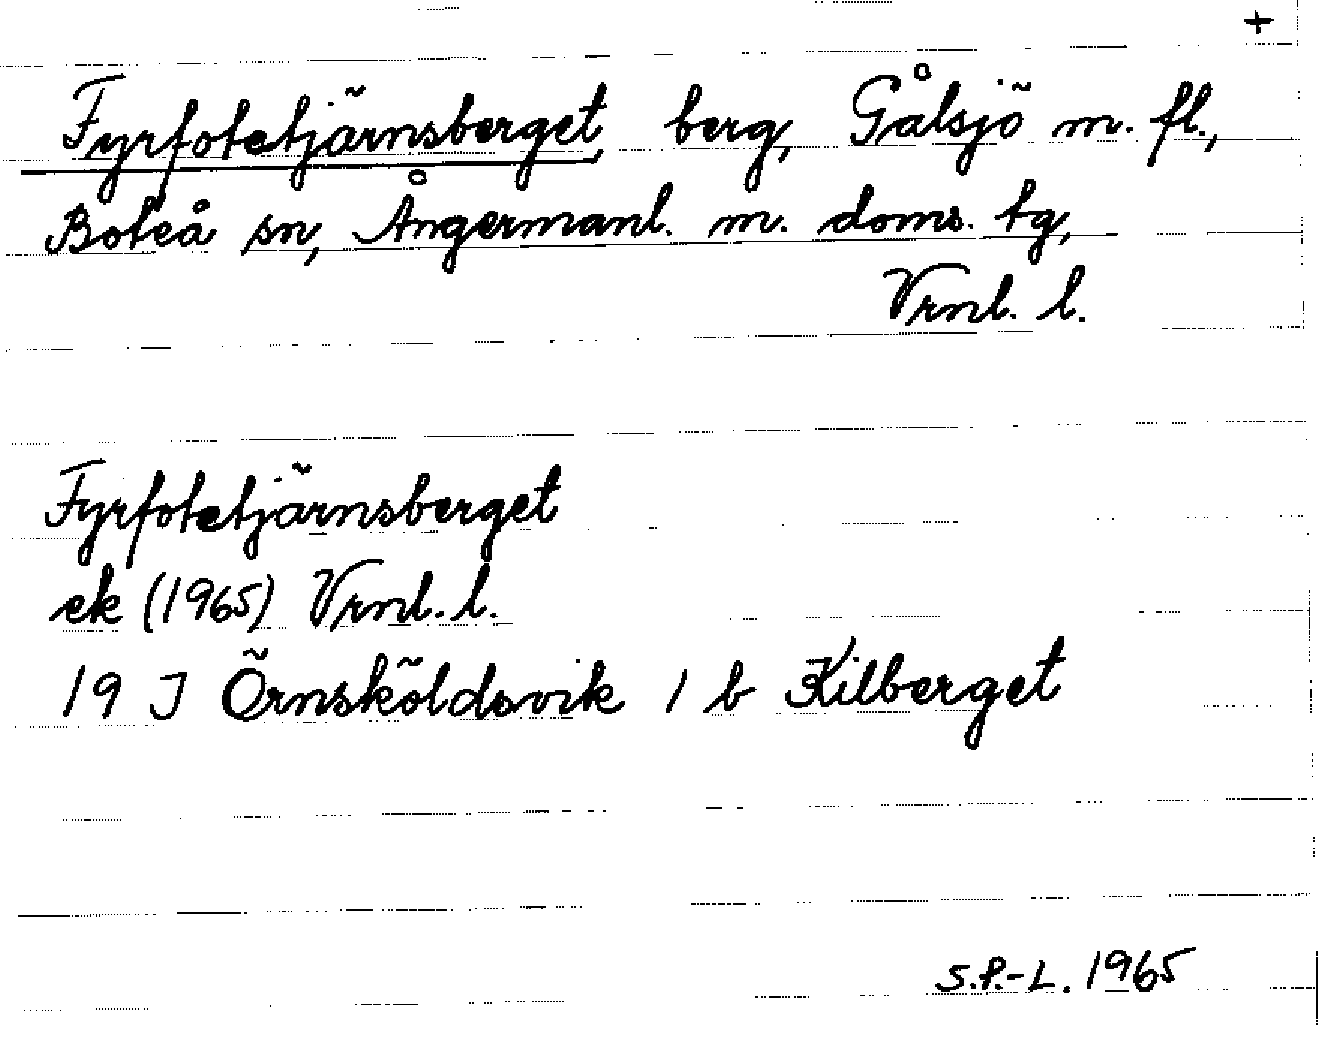 +
Fyrfotetjärnsberget, berg, Gålsjö m. fl.,
Boteå sn, Ångermanl. m. doms. tg,
Vrnl. l.
Fyrfotetjärnsberget
ek (1965) Vrnl. l.
19 J Örnsköldsvik 1 b Kilberget
S.P.-L. 1965